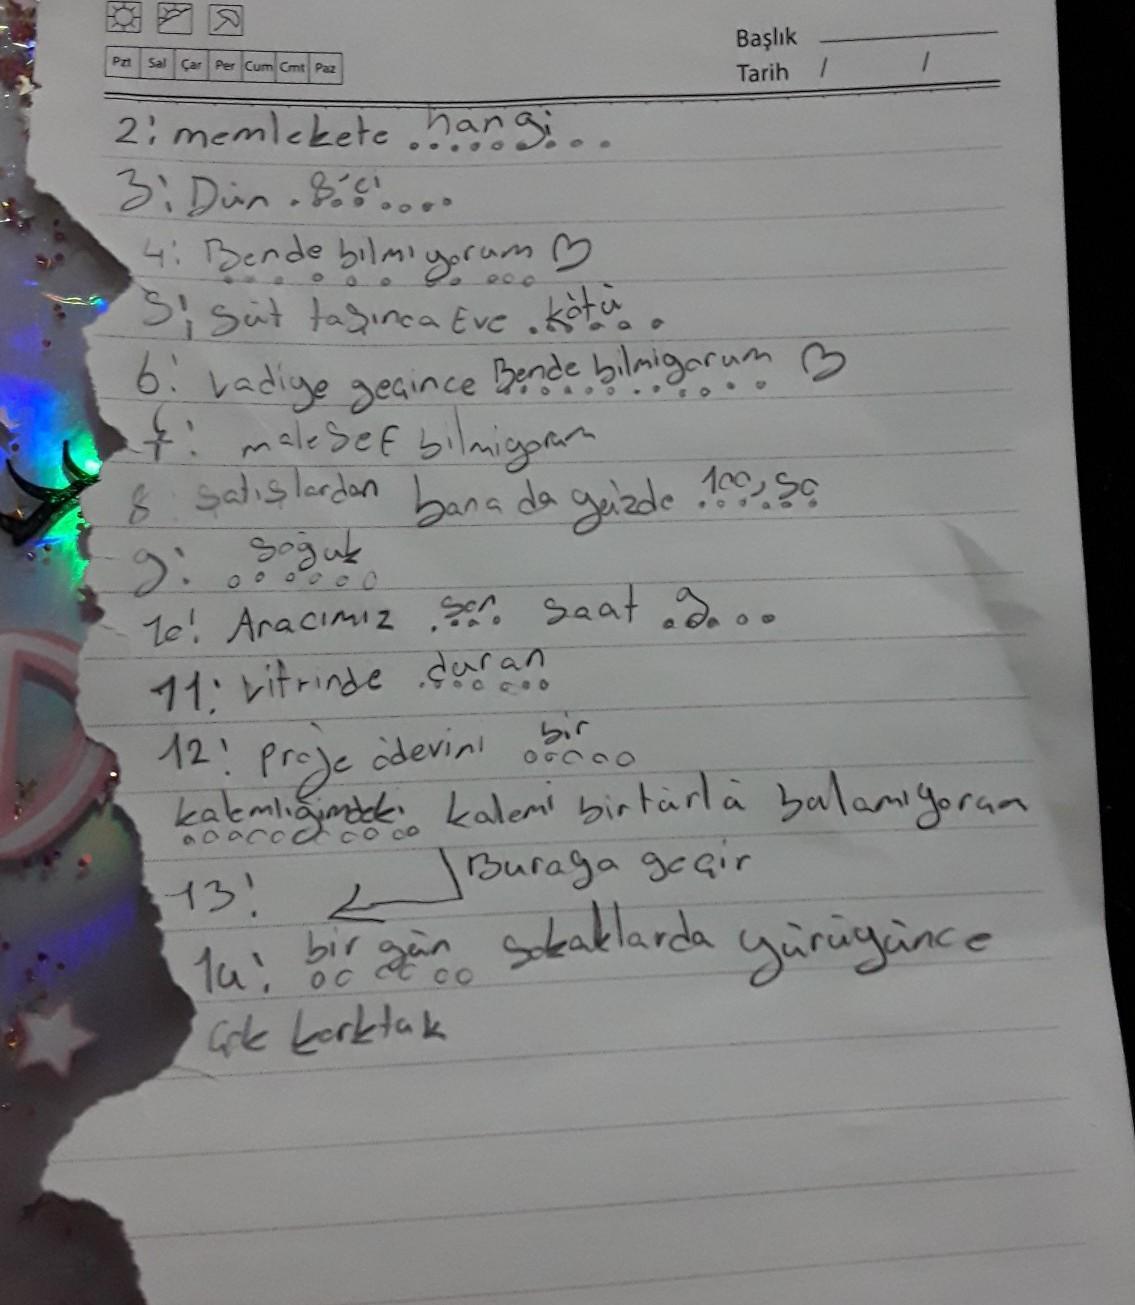 Pzt Sal Çar Per Cum Cmt Paz
Başlık
Tarih / /
2: memlekete hangi...
3: Dün .8'ci....
4: Bende bilmiyorum ♡
5: Süt taşınca Eve .kötü..
6: Vadiye geçince Bende bilmiyorum ♡
7: malesef bilmiyorum
8 satışlardan bana da yüzde 100,50
9: soğuk
10: Aracımız .son. saat .9...
11: vitrinde duran
12: proje ödevini bir
kalemliğimdeki kalemi birtürlü bulamıyorum
13: Buraya geçir
14: bir gün sokaklarda yürüyünce
çok korktuk